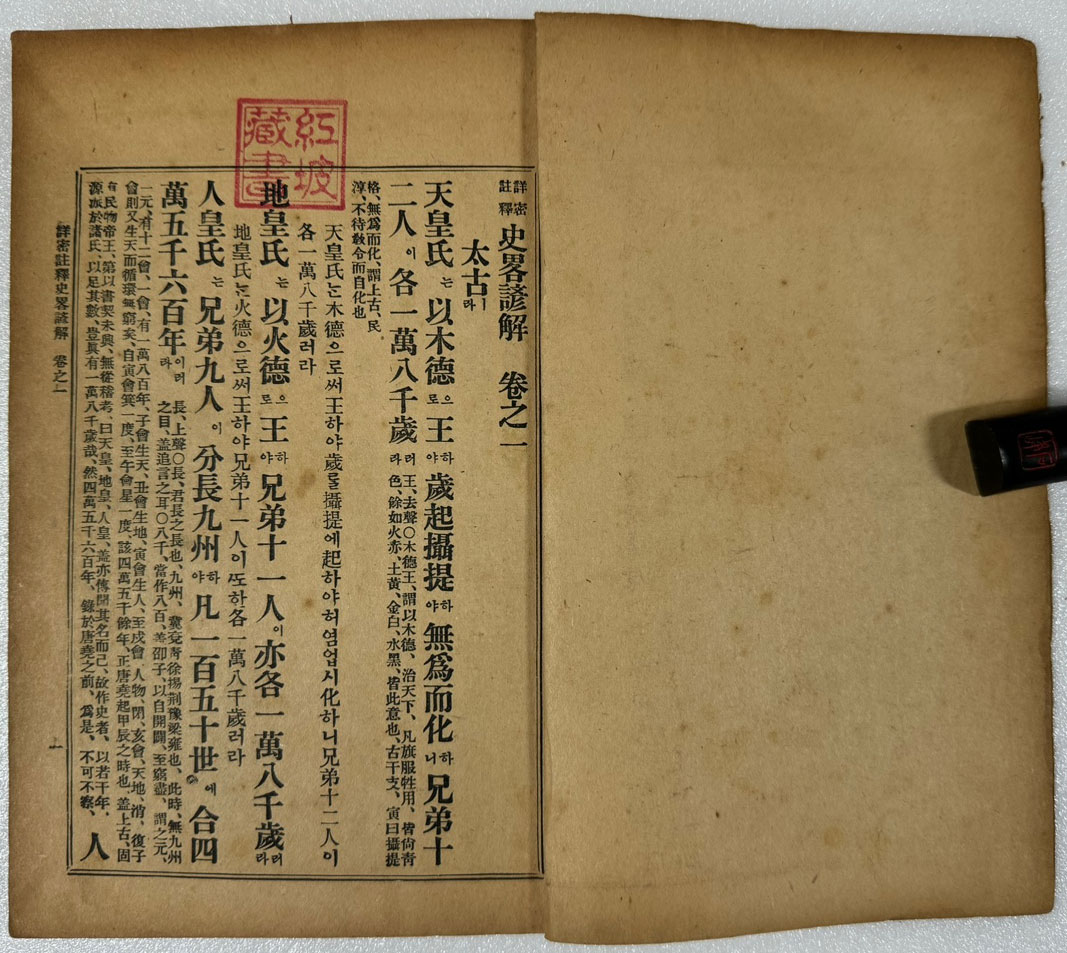 詳密註釋 史畧諺解 卷之一
太古ㅣ라
天皇氏는 以木德으로 王하야 歲起攝提하야 無爲而化하니 兄弟十
二人이 各一萬八千歲러라 王、去聲○木德王、謂以木德、治天下、凡旗服牲用、皆尙靑
色、餘如火赤、土黃、金白、水黑、皆此意也、古干支、寅曰攝提
格、無爲而化、謂上古、民
淳、不待敎令而自化也
天皇氏는木德으로써王하야歲를攝提에起하야허염업시化하니兄弟十二人이
各一萬八千歲러라
地皇氏는 以火德으로 王하야 兄弟十一人이 亦各一萬八千歲러라
地皇氏는火德으로써王하야兄弟十一人이ᄯᅩ한各一萬八千歲러라
人皇氏는 兄弟九人이 分長九州하야 凡一百五十世에 合四
萬五千六百年이러라 長、上聲○長、君長之長也、九州、冀兗靑徐揚荊豫梁雍也、此時、無九州
之目、盖追言之耳○八千、當作八百、善邵子、以自開闢、至窮盡、謂之元、
一元、有十二會、一會、有一萬八百年、子會生天、丑會生地、寅會生人、至戌會、人物、閉、亥會、天地、消、復子
會則又生天而循環無窮矣、自寅會箕一度、至午會星一度、該四萬五千餘年、正唐堯起甲辰之時也、盖上古、固
有民物帝王、第以書契未興、無從稽考、曰天皇、地皇、人皇、盖亦傳聞其名而已、故作史者、以若干年、
源派於諸氏、以足其數、豈眞有一萬八千歲哉、然四萬五千六百年、錄於唐堯之前、爲是、不可不察、
人
詳密註釋史畧諺解 卷之一
一
紅坡藏書